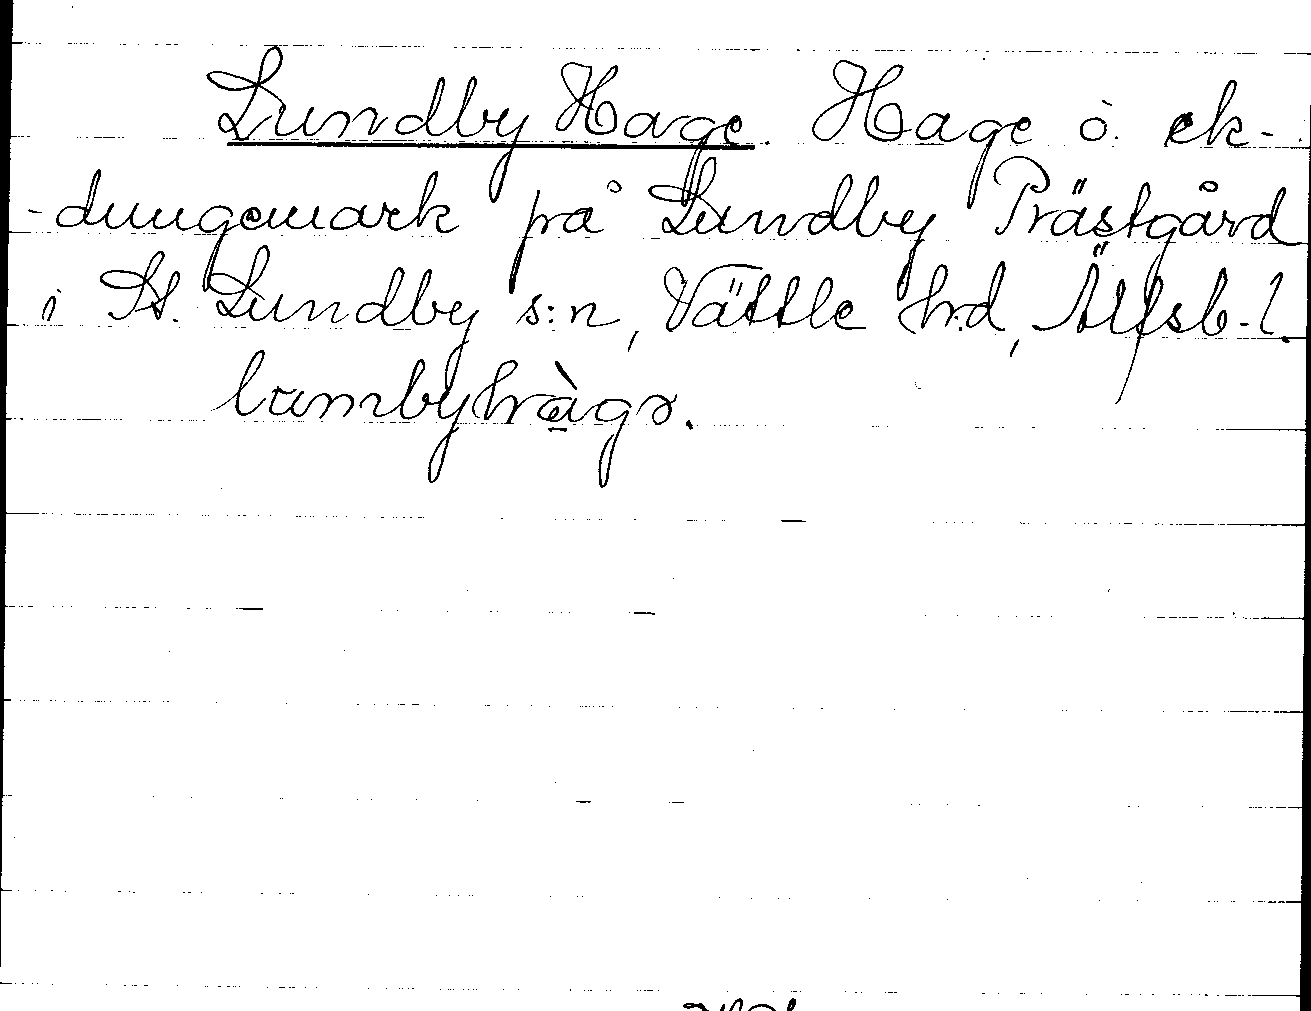 Lundby Hage. Hage o. ek-
-dungemark på Lundby Prästgård
i St. Lundby s:n, Vättle hrd, Älfsb. l.